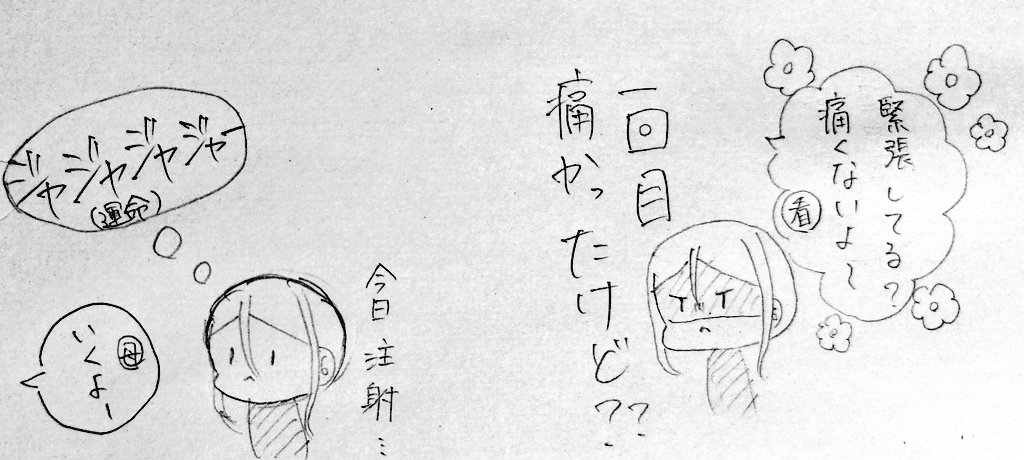 緊張してる?
痛くないよ〜
看
一回目
痛かったけど??
今日注射…
ジャジャジャジャ
(運命)
母
いくよー